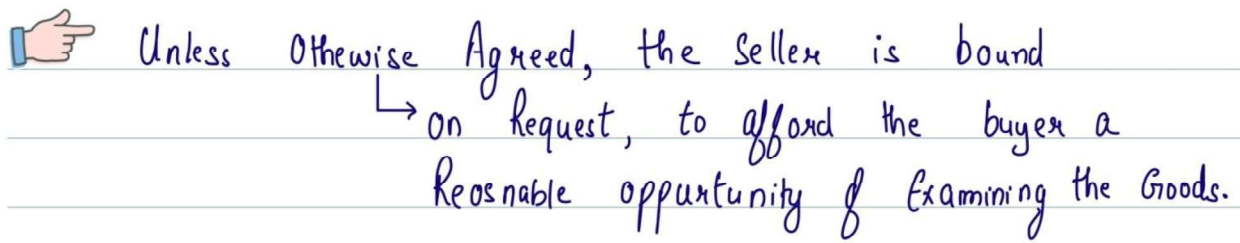 Unless Othewise Agreed, the Seller is bound
on Request, to afford the buyer a
Reosnable oppurtunity of Examining the Goods.